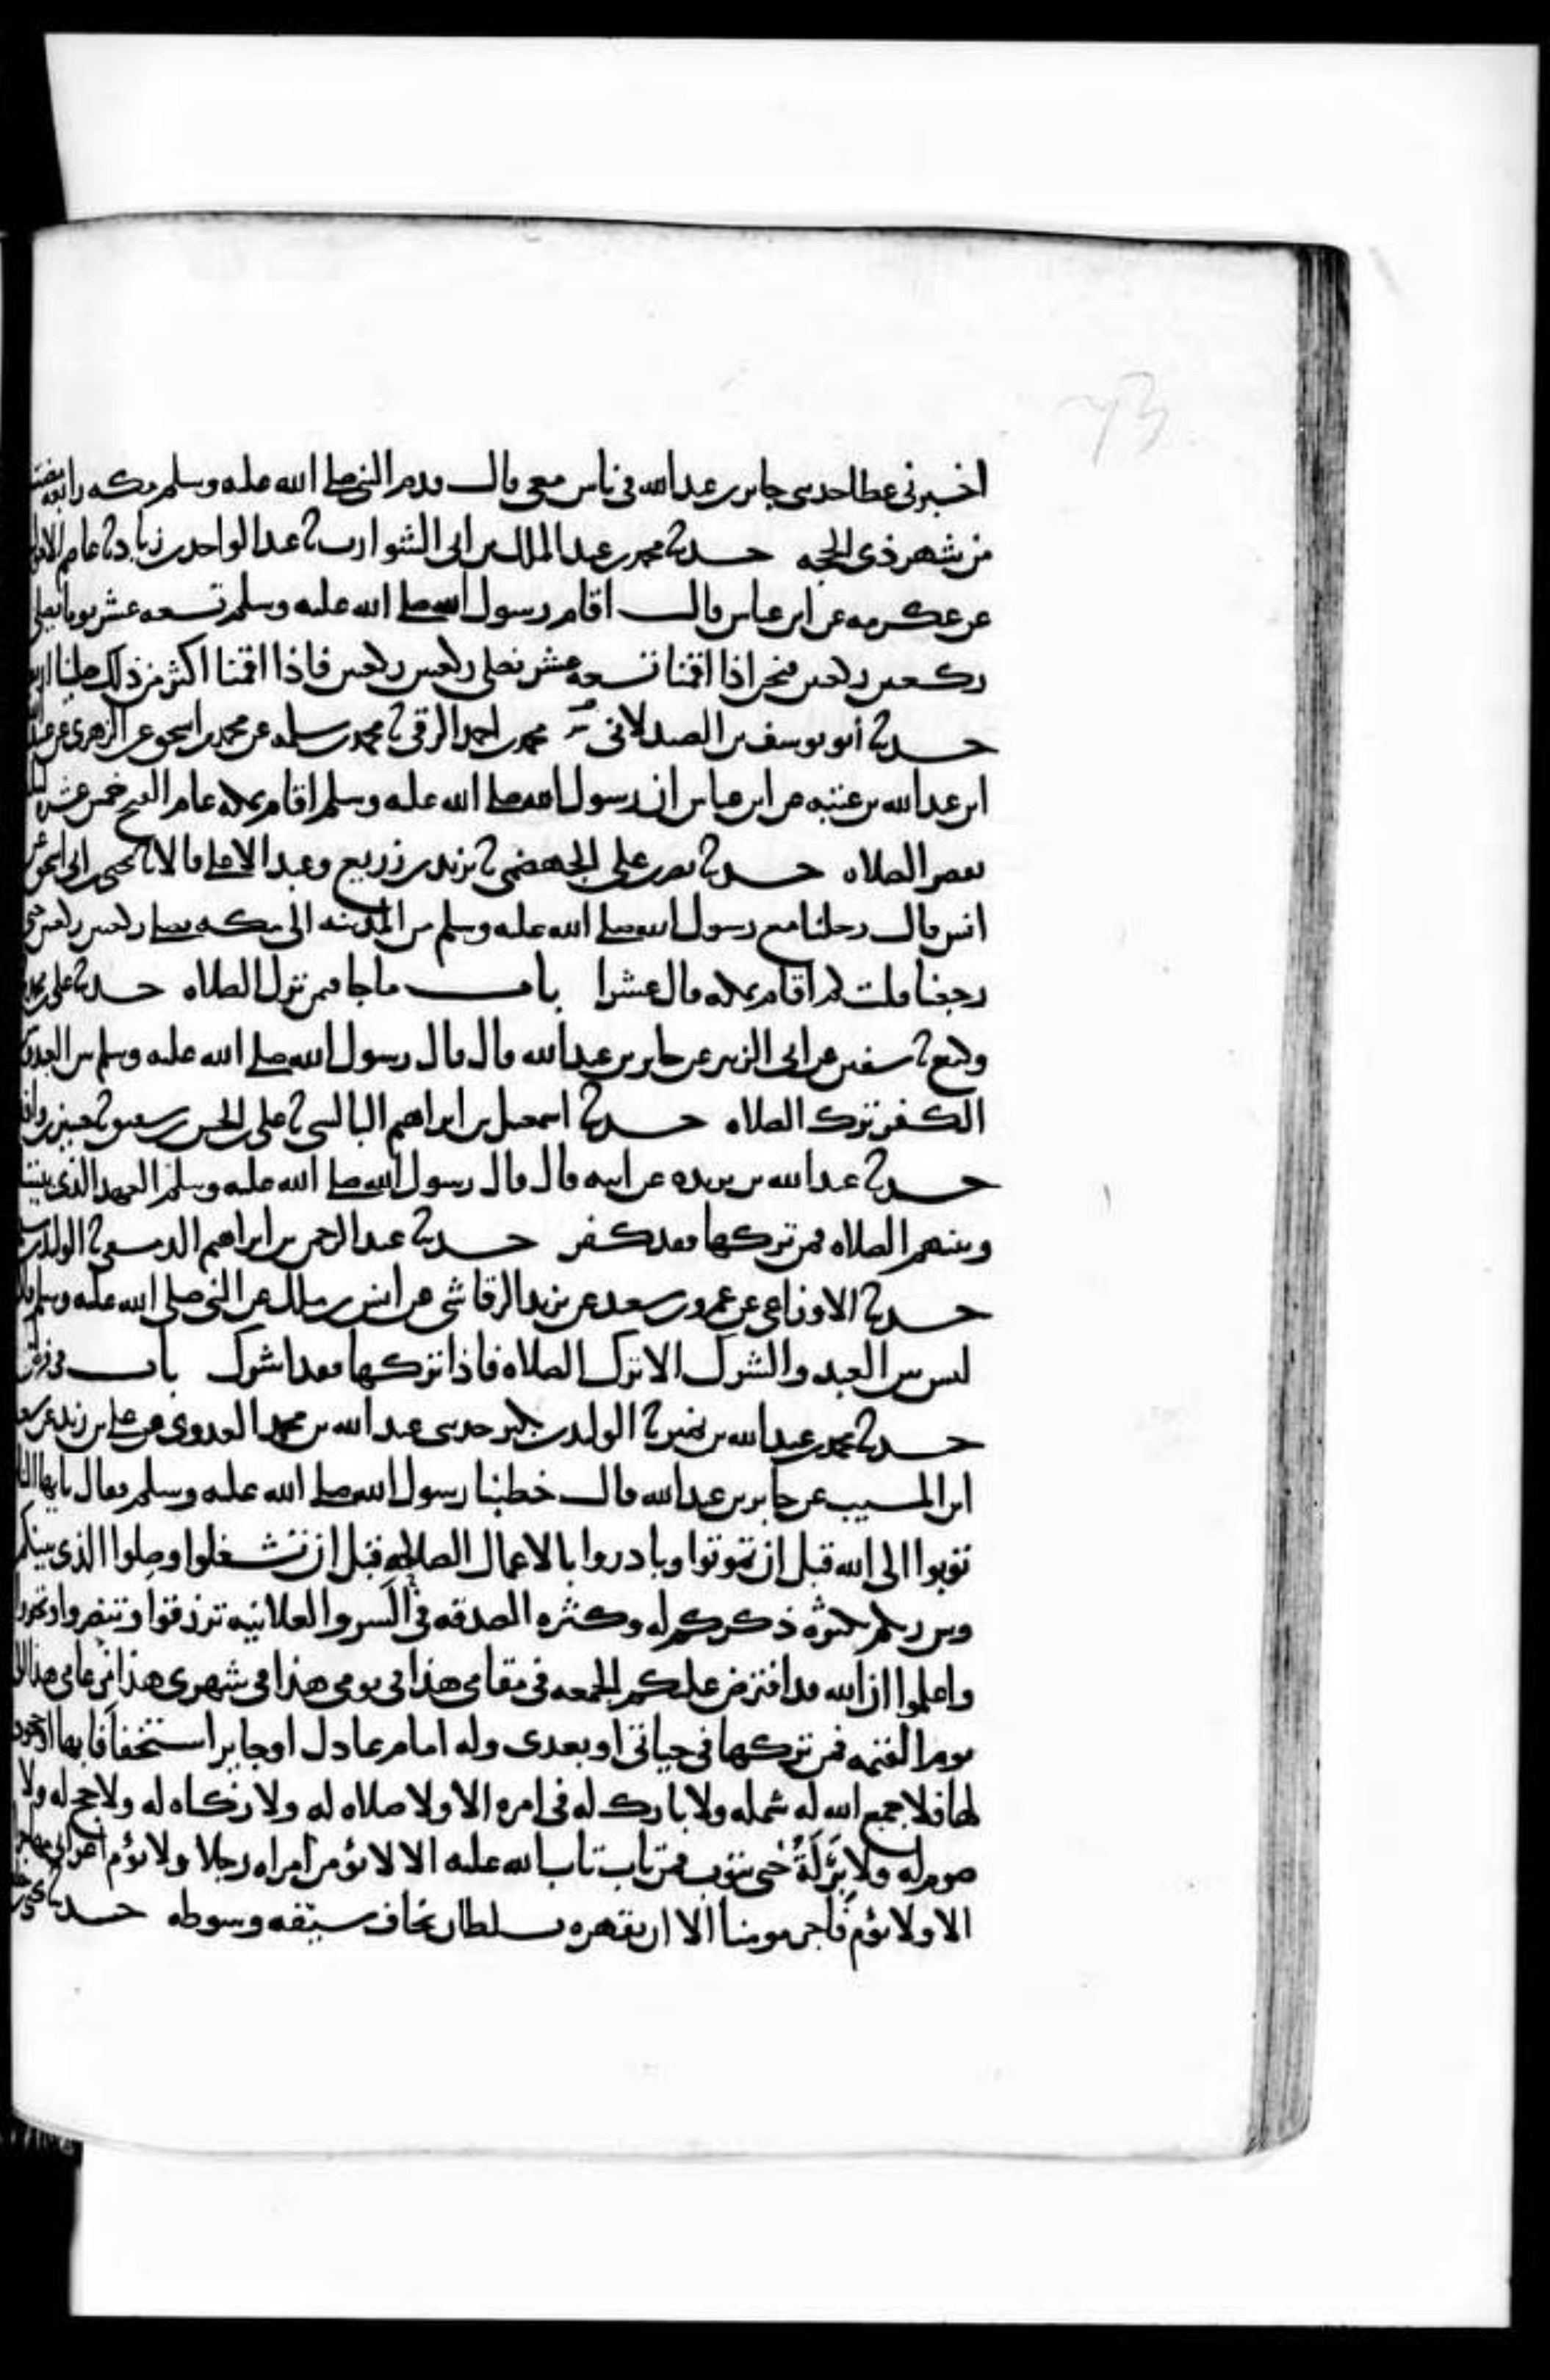 73
اخبرنى عطا حدثنى جابر بن عبدالله فى ناس معى قال قدم النبى صلى الله عليه وسلم مكه رابعه مضت
من شهر ذى الحجه حدثنا محمد بن عبد الملك بن ابى الشوارب ثنا عبد الواحد بن زياد ثنا عاصم الاحول
عن عكرمه عن ابن عباس قال اقام رسول الله صلى الله عليه وسلم تسعه عشر يوما يصلى
ركعتين ركعتين فنحن اذا اقمنا تسعه عشر نصلى ركعتين ركعتين فاذا اقمنا اكثر من ذلك صلينا اربعا
حدثنا أبو يوسف بن الصيدلانى محمد بن احمد الرقى ثنا محمد بن سلمه عن محمد بن اسحق عن الزهرى عن عبيد
ابن عبد الله بن عتبه عن ابن عباس ان رسول الله صلى الله عليه وسلم اقام بمكه عام الفتح خمس عشره ليله
يقصر الصلاه حدثنا نصر بن على الجهضمى ثنا يزيد بن زريع وعبد الاعلى قالا ثنا يحيى بن ابى اسحق عن
انس قال رحلنا مع رسول الله صلى الله عليه وسلم من المدينه الى مكه نصلى ركعتين ركعتين حتى
رجعنا قلت كم اقام بمكه قال عشرا باب ما جا فيمن ترك الصلاه حدثنا على بن محمد
وكيع ثنا سفين عن ابى الزبير عن جابر بن عبد الله قال قال رسول الله صلى الله عليه وسلم بين العبد وبين
الكفر ترك الصلاه حدثنا اسمعيل بن ابراهيم البالسى ثنا على بن الحسن بن شقيق ثنا حسين بن واقد
حدثنا عبد الله بن بريده عن ابيه قال قال رسول الله صلى الله عليه وسلم العهد الذى بيننا
وبينهم الصلاه فمن تركها فقد كفر حدثنا عبد الرحمن بن ابراهيم الدمشقى ثنا الوليد بن مسلم
حدثنا الاوزاعى عن عمرو بن سعد عن يزيد الرقاشى عن انس بن ملك عن النبى صلى الله عليه وسلم قال
ليس بين العبد والشرك الا ترك الصلاه فاذا تركها فقد اشرك باب فى فرض
حدثنا محمد بن عبد الله بن نمير ثنا الوليد بن بكير حدثنى عبد الله بن محمد العدوى عن على بن زيد عن سعيد
ابن المسيب عن جابر بن عبد الله قال خطبنا رسول الله صلى الله عليه وسلم فقال يا يها الناس
توبوا الى الله قبل ان تموتوا وبادروا بالاعمال الصالحه قبل ان تشغلوا وصلوا الذى بينكم
وبين ربكم بكثره ذكركم له وكثره الصدقه فى السر والعلانيه ترزقوا وتنصروا وتجبروا
واعلموا ان الله قد افترض عليكم الجمعه فى مقامى هذا فى يومى هذا فى شهرى هذا من عامى هذا الى
يوم القيمه فمن تركها فى حياتى او بعدى وله امام عادل او جاير استخفافا بها او جحودا
لها فلا جمع الله له شمله ولا بارك له فى امره الا ولا صلاه له ولا زكاه له ولا حج له ولا
صوم له ولا بر له حتى يتوب فمن تاب تاب الله عليه الا لا تؤمن امراه رجلا ولا يؤم اعرابى مهاجرا
الا ولا يؤم فاجر مومنا الا ان يقهره سلطان يخاف سيفه وسوطه حدثنا